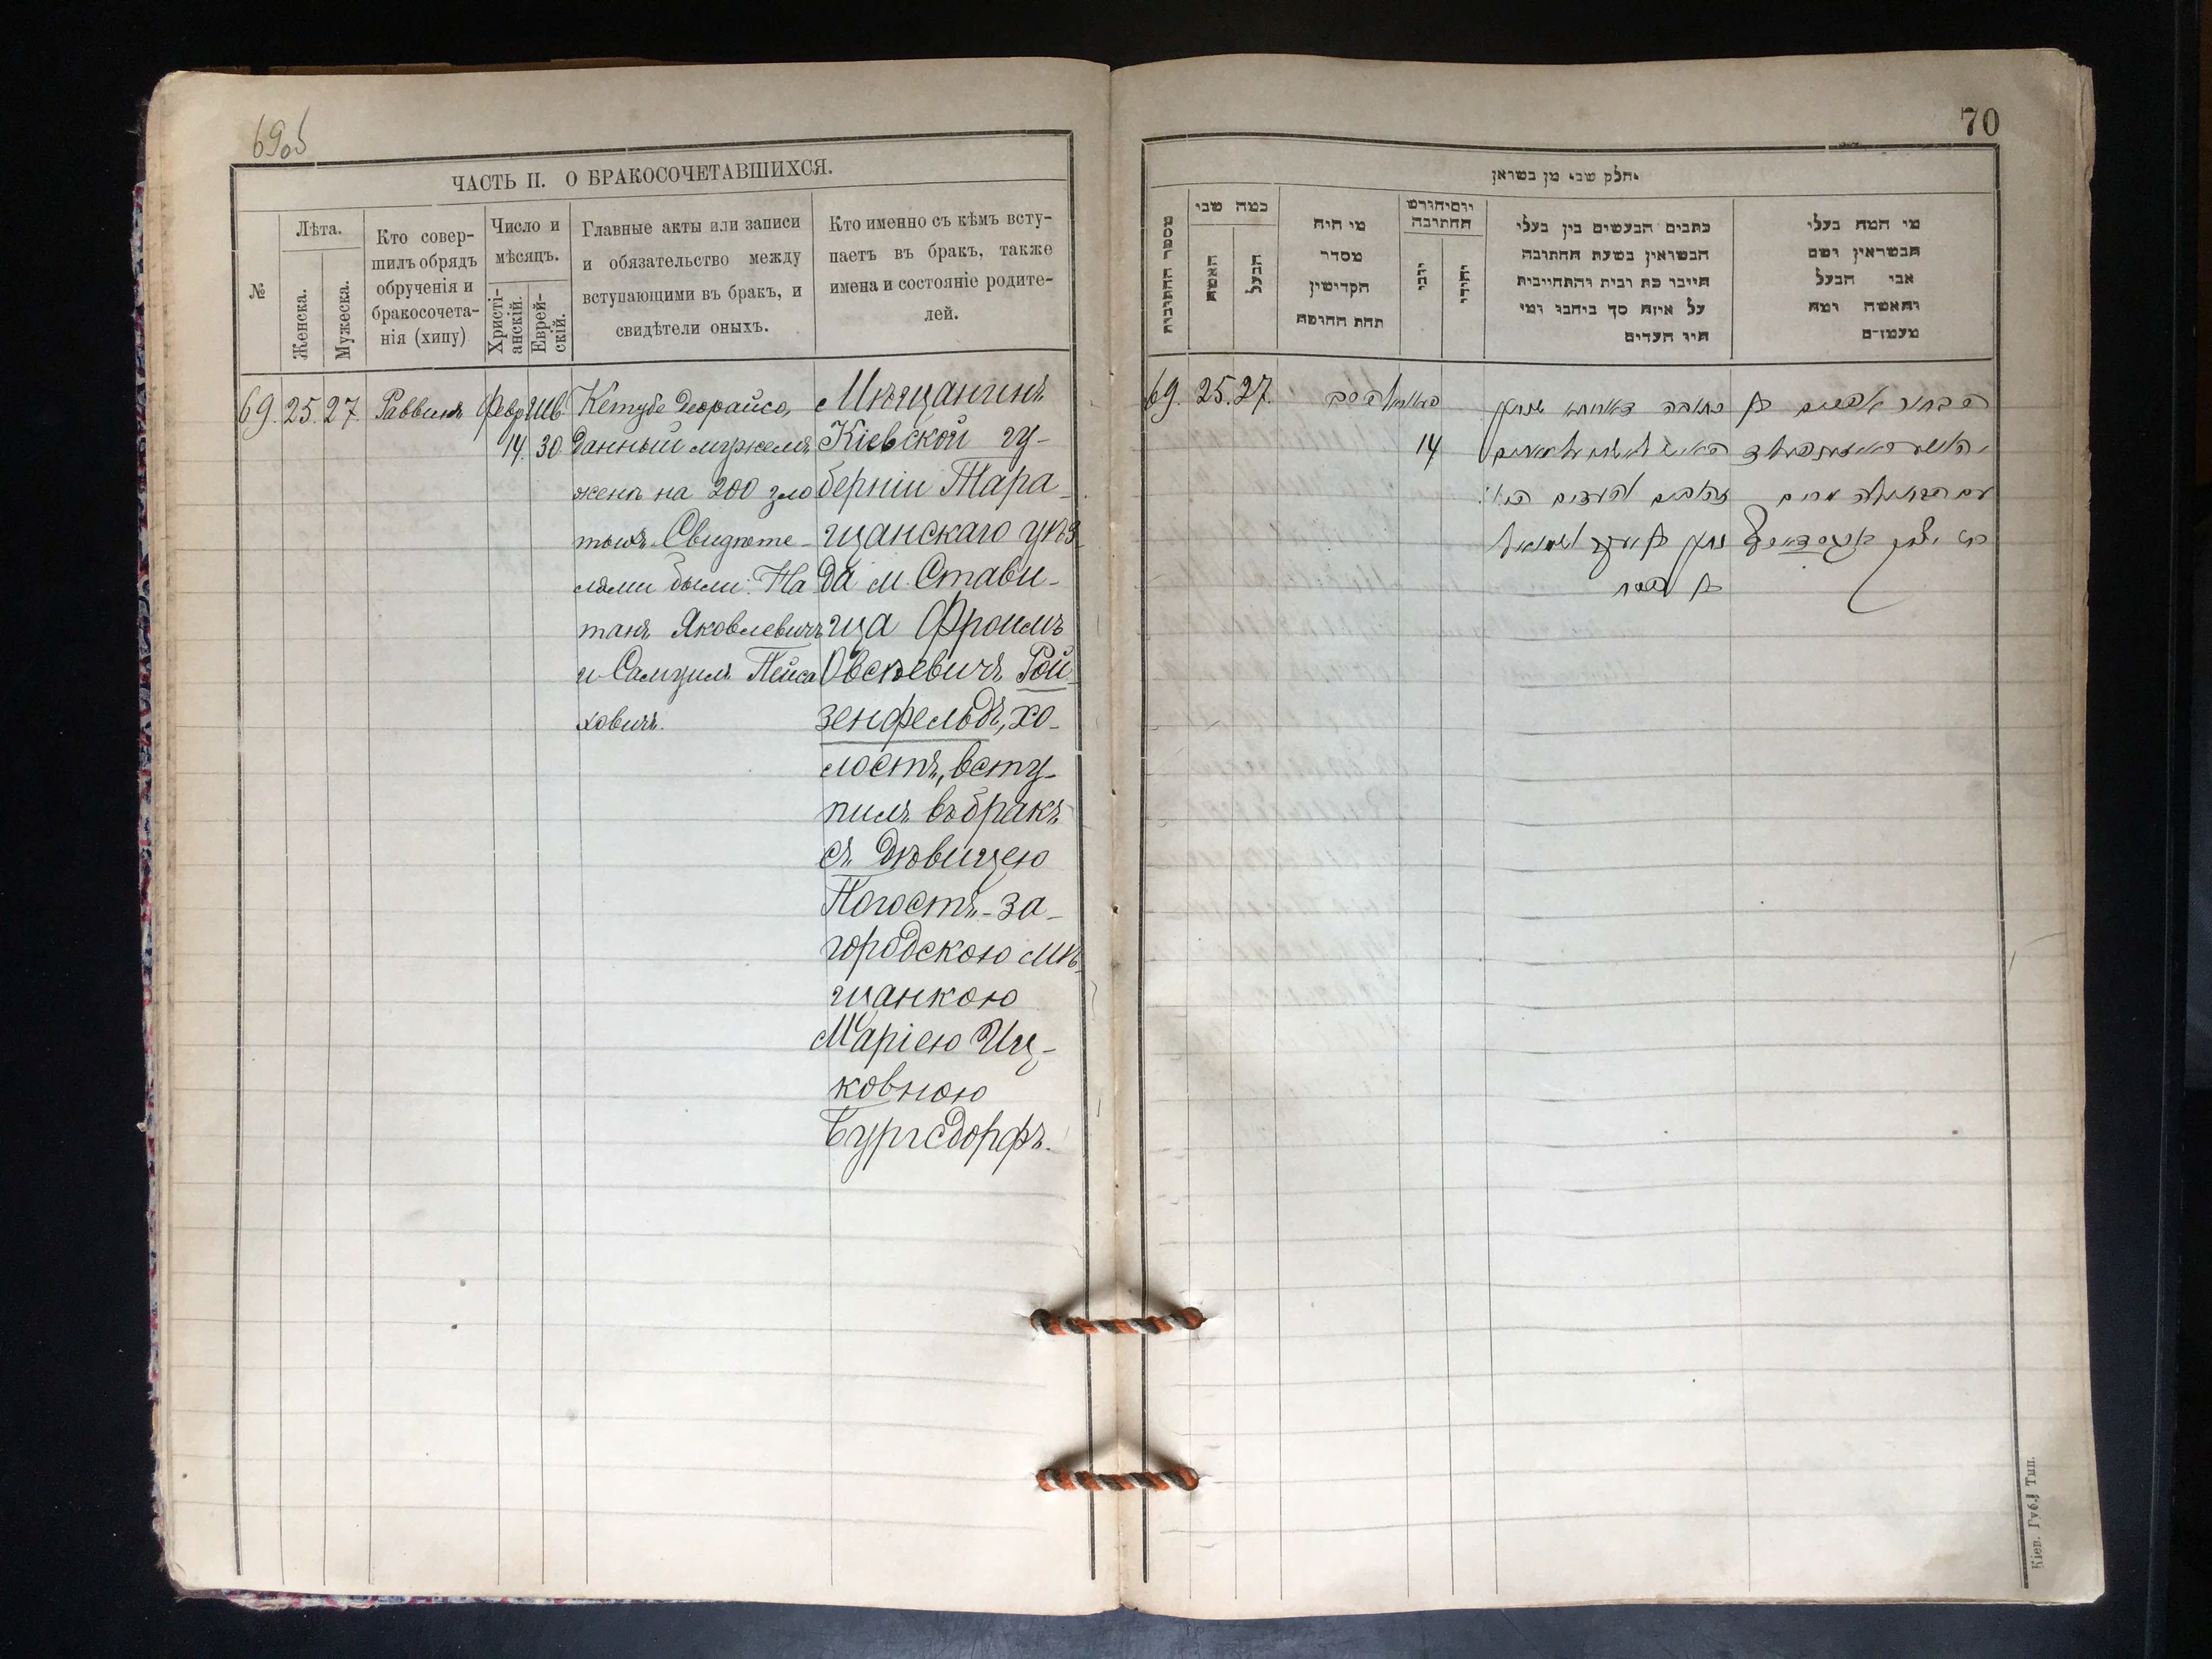 69об
ЧАСТЬ II. О БРАКОСОЧЕТАВШИХСЯ.
№
Лѣта.
Женска.
Мужеска.
Кто совер-
шилъ обрядъ
обрученія и
бракосочета-
нія (хипу)
Число и
мѣсяцъ.
Христі-
анскій.
Еврей-
скій.
Главные акты или записи
и обязательство между
вступающими въ бракъ, и
свидѣтели оныхъ.
Кто именно съ кѣмъ всту-
паетъ въ бракъ, также
имена и состояніе родите-
лей.
69. 25. 27. Раввинъ Февр Шв
14. 30.
Кетубе деорайсо,
данный мужемъ
женѣ на 200 зло
тыхъ. Свидѣте-
лями были: На
танъ Яковлевичъ
и Самуилъ Пейса
ховичъ.
Мѣщанинъ
Кіевской гу-
берніи Тара-
щанскаго уѣз-
да м. Стави-
ща Фроимъ
Овсѣевичъ Рой-
зенфельдъ, хо-
лостъ, всту-
пилъ въ бракъ
съ дѣвицею
Погостъ-за-
городскою мѣ-
щанкою
Маріею Иц-
ковною
Бургсдорфъ.
70
חלק שני מן נשואן
מספר החתונות
כמה שני
האשה
הבעל
מי היה
מסדר
הקדישין
תחת החופה
יום וחודש
החתונה
יוני
יהודי
כתבים הנעשים בין בעלי
הנשואין בשעת החתונה
היינו כת ובית והתחייבות
על איזה סך ביחנו ומי
היו העדים
מי המה בעלי
הנשואין ושם
אבי הבעל
והאשה ומה
מעמדם
69. 25. 27.
14
הבחור אפרים בן
עם הבתולה מרים
כתובה דאורייתא
זהובים והעדים היו:
נתן בן יעקב ושמואל
בן פסח
Кіев. Губ. Тип.